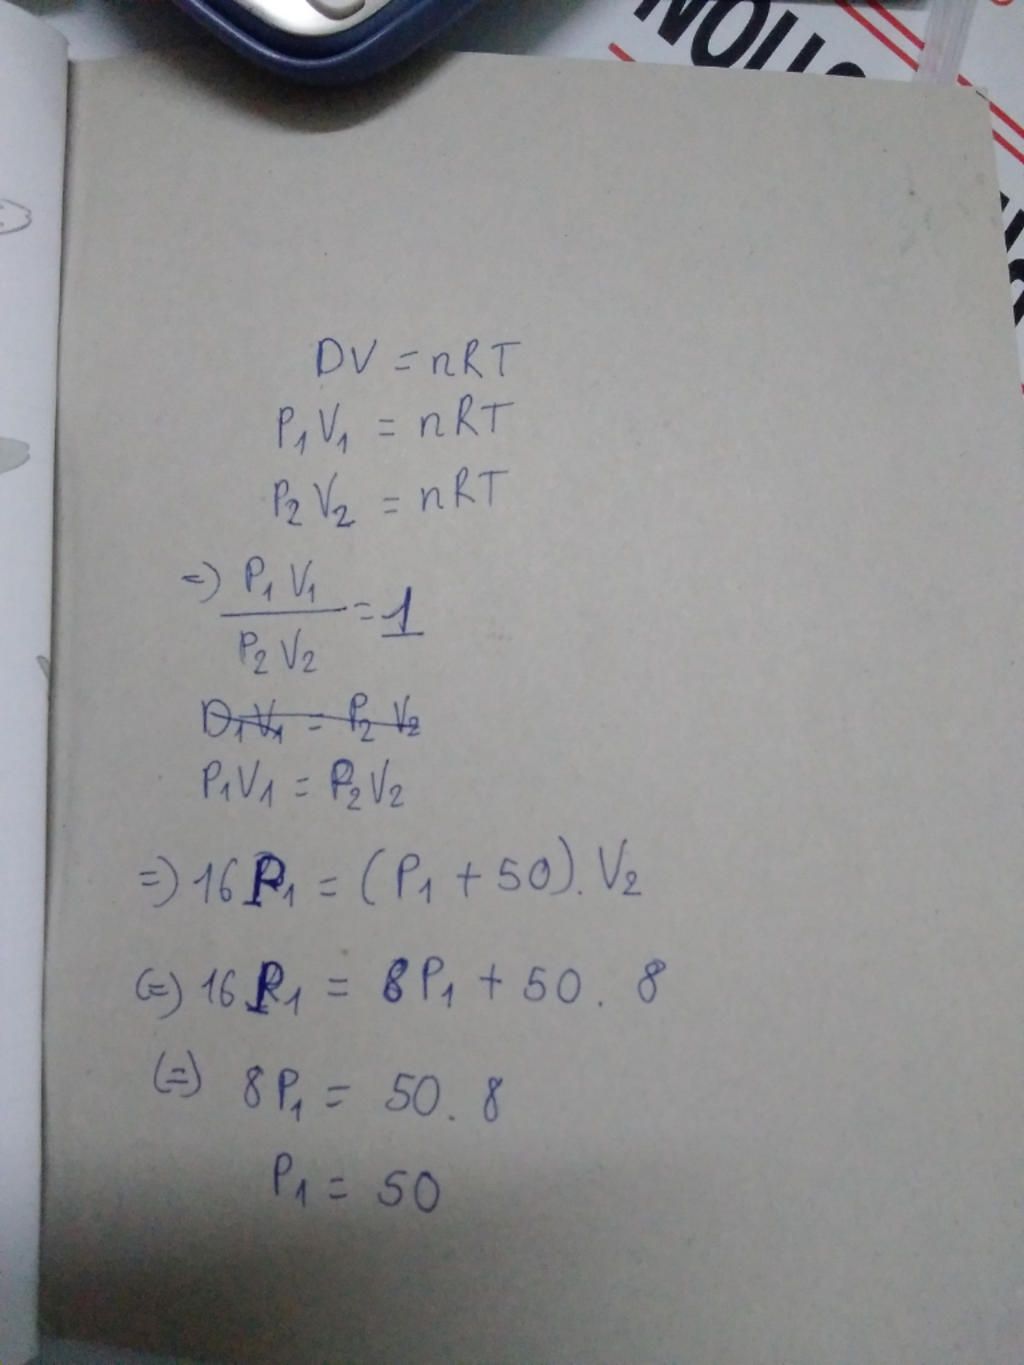 NOU
PV = nRT
P₁V₁ = nRT
P₂V₂ = nRT
=) P₁V₁ / P₂V₂ = 1
P₁V₁ = P₂V₂
P₁V₁ = P₂V₂
=) 16P₁ = (P₁ + 50). V₂
(=) 16P₁ = 8P₁ + 50 . 8
(=) 8P₁ = 50 . 8
P₁ = 50